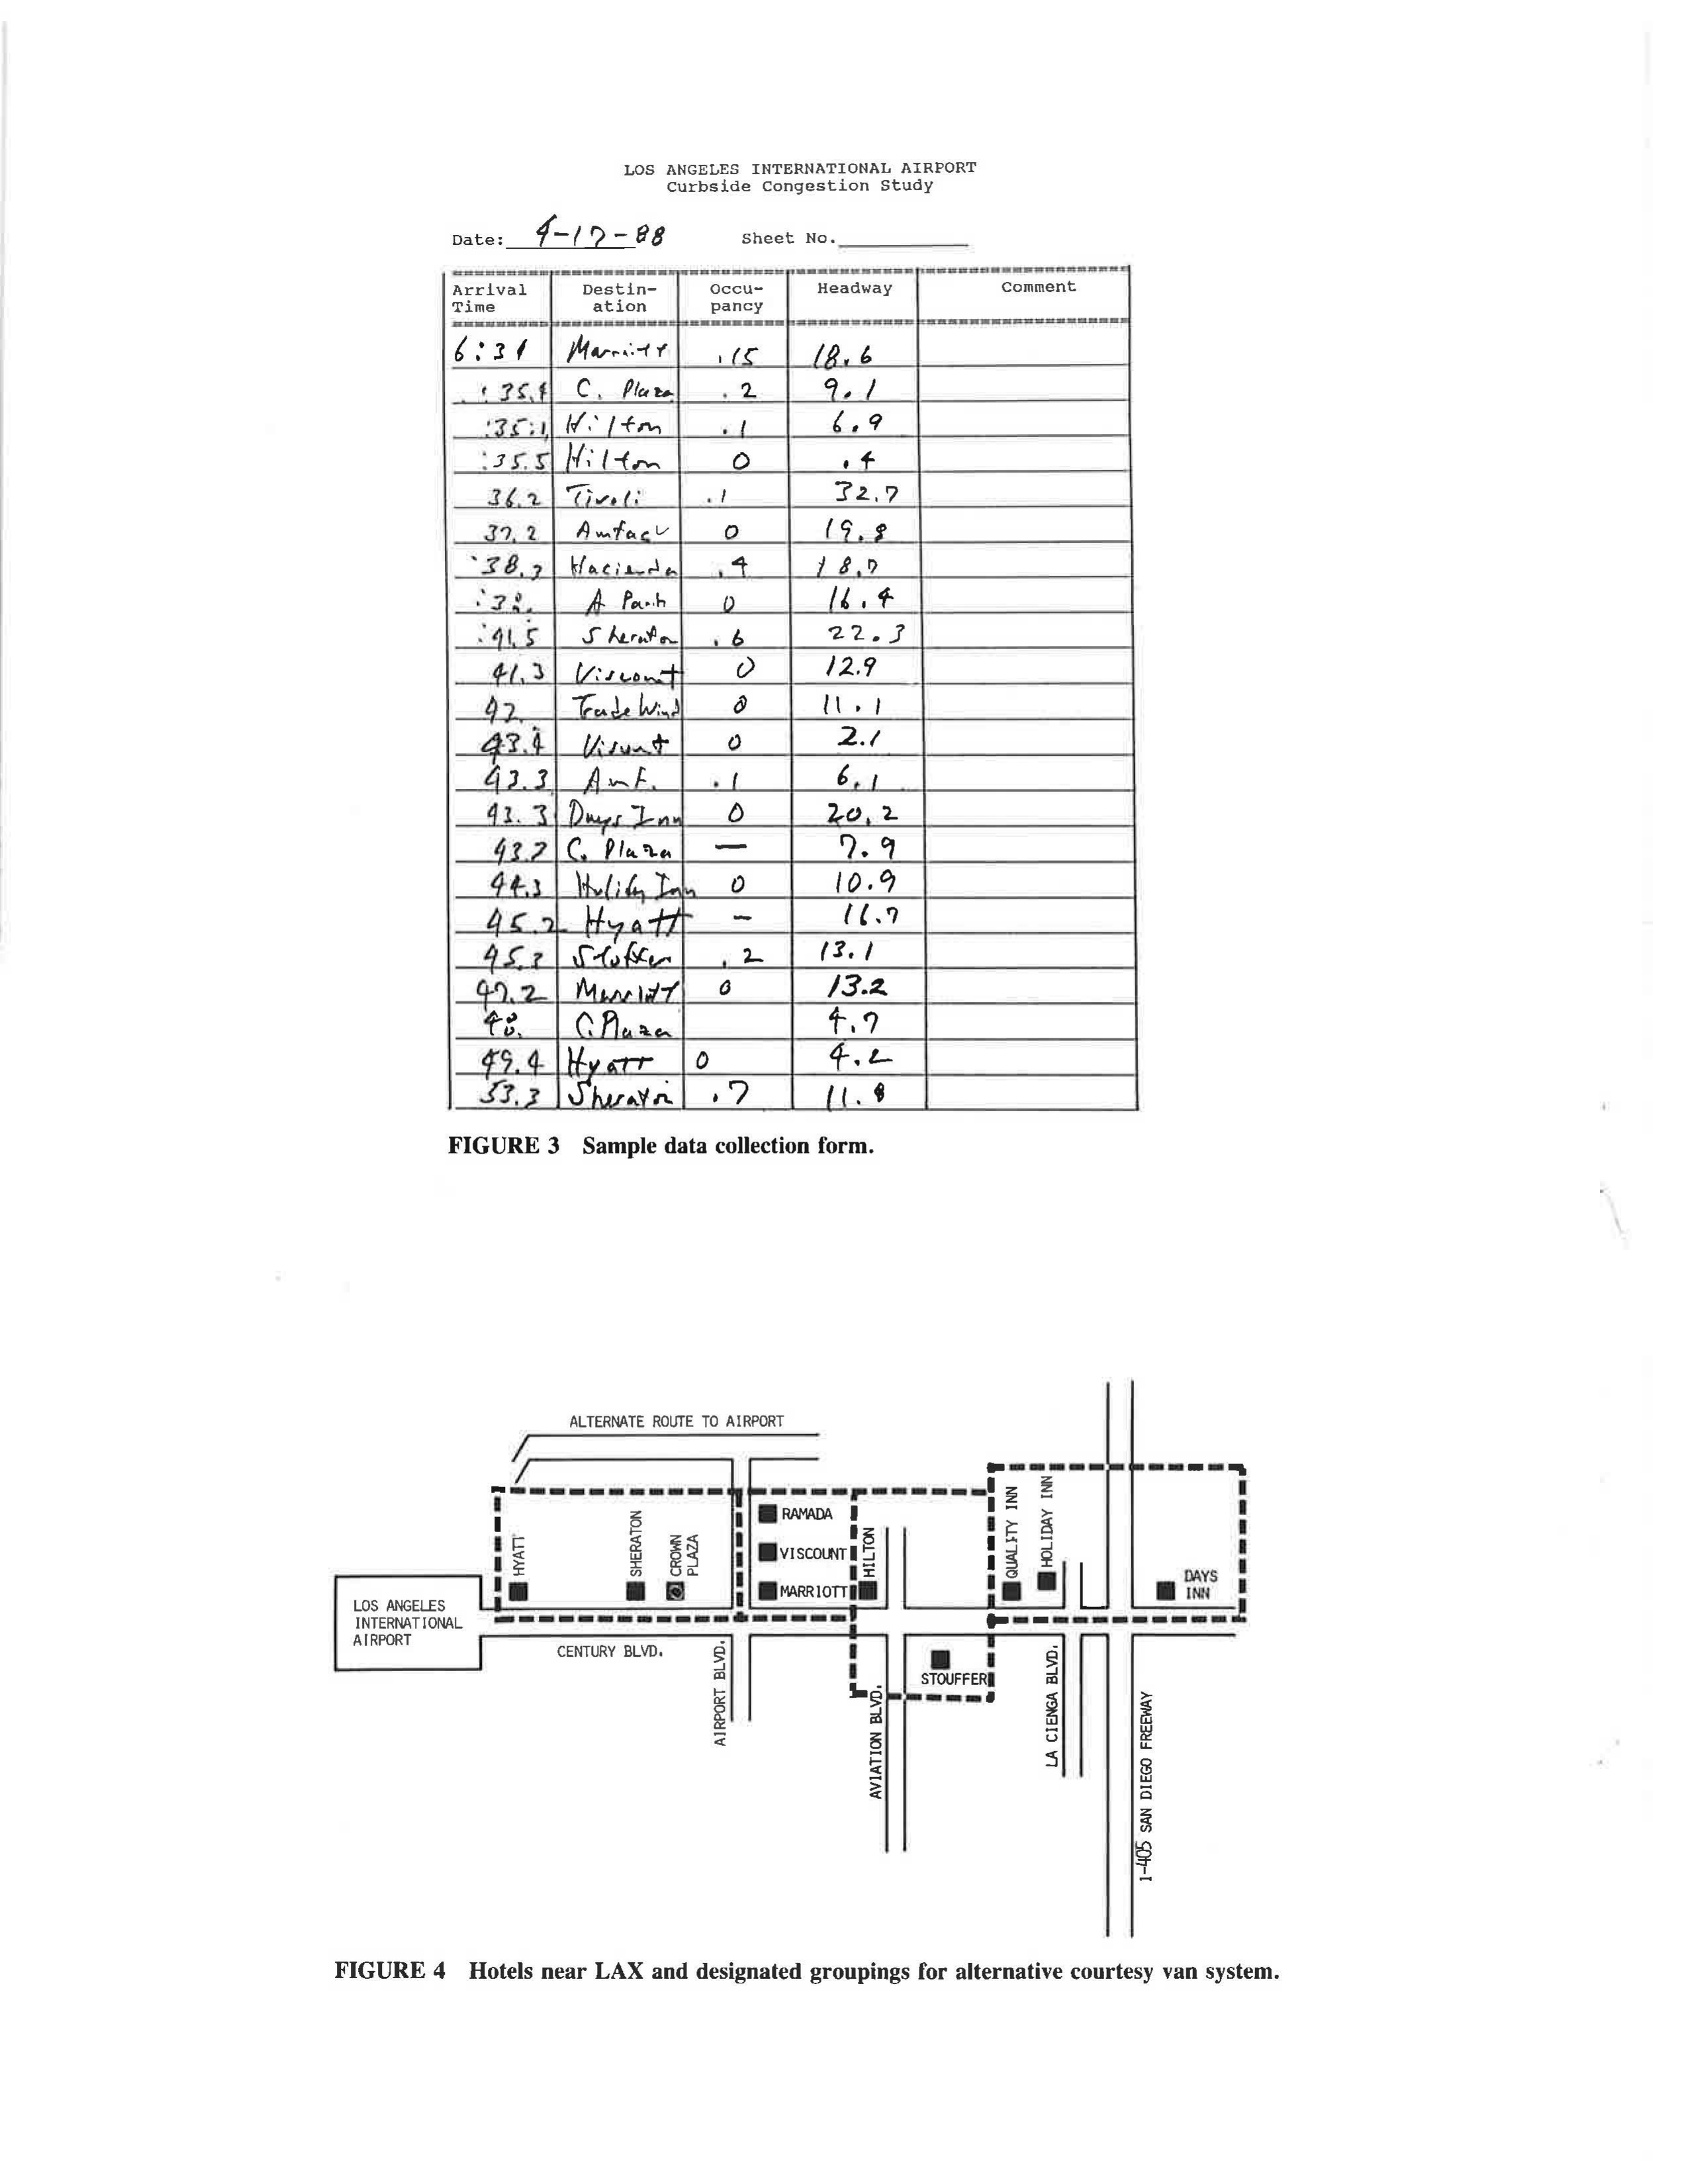 LOS ANGELES INTERNATIONAL AIRPORT
Curbside Congestion Study
Date: 4-17-88 Sheet No.
Arrival Time Destin-ation Occu-pancy Headway Comment
6:31 Marriott .15 18.6
:35.4 C. Plaza .2 9.1
:35.1 Hilton .1 6.9
:35.5 Hilton 0 .4
36.2 Tivoli .1 32.7
37.2 Amfac 0 19.8
:38.3 Hacienda .4 18.7
A Park 0 16.4
:41.5 Sheraton .6 22.3
41.3 Viscount 0 12.9
42. TradeWind 0 11.1
43.4 Viscunt 0 2.1
43.3 Amf. .1 6.1
43.3 Days Inn 0 20.2
43.7 C. Plaza — 7.9
44.3 Holidy Inn 0 10.9
45.2 Hyatt – 16.7
45.3 .2 13.1
47.2 Marriott 0 13.2
48. C. Plaza 4.7
49.4 Hyatt 0 4.2
53.3 Sheraton .7 11.8
FIGURE 3 Sample data collection form.
ALTERNATE ROUTE TO AIRPORT
HYATT
SHERATON
CROWN
PLAZA
RAMADA
VISCOUNT
MARRIOTT
HILTON
QUALITY INN
HOLIDAY INN
DAYS
INN
LOS ANGELES
INTERNATIONAL
AIRPORT
CENTURY BLVD.
STOUFFER
AIRPORT BLVD.
AVIATION BLVD.
LA CIENGA BLVD.
I-405 SAN DIEGO FREEWAY
FIGURE 4 Hotels near LAX and designated groupings for alternative courtesy van system.